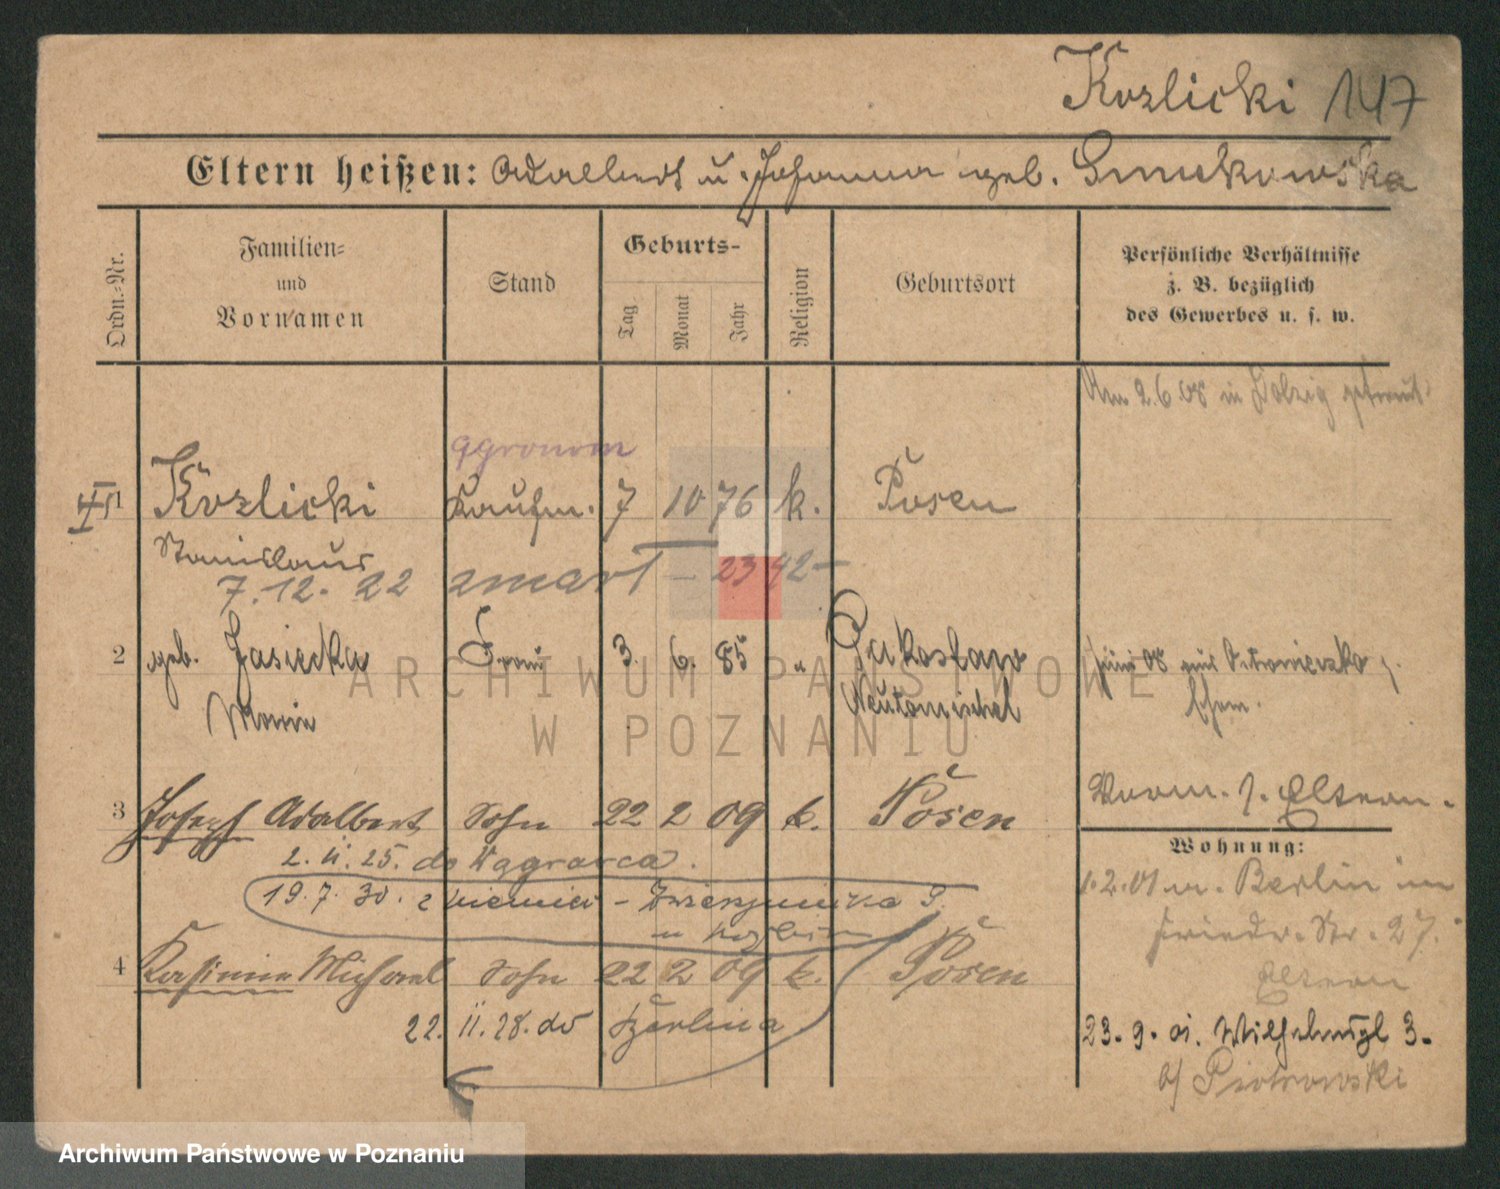 Kozlicki 147
Eltern heißen: Adalbert u. Johanna geb.
Ordn.-Nr.
Familien-
und
Vornamen
Stand
Geburts-
Tag
Monat
Jahr
Religion
Geburtsort
Persönliche Verhältnisse
z. B. bezüglich
des Gewerbes u. s. w.
Am 2.6.08 in Dolzig getraut
agronom
1 Kozlicki Kaufm. 7 10 76 k. Posen
Stanislaus
7.12.22 zmarł – 2342 –
2 geb. Jasiecka Frau 3. 6. 85 " Pakoslaw
Maria Neutomischel
Juni 08
Ehem.
3 Joseph Adalbert Sohn 22 2 09 k. Posen
Vorm. s. Eltern.
2. II. 25. do Wągrowca.
19.7.30. z Niemiec –
4 Kasimir Michael Sohn 22 2 09 k. Posen
22. II. 28. do Berlina
Wohnung:
1.2.01 v. Berlin
Friedr. Str. 27.
Eltern
23. 9. 01. 3.
b/ Piotrowski
ARCHIWUM PAŃSTWOWE
W POZNANIU
Archiwum Państwowe w Poznaniu